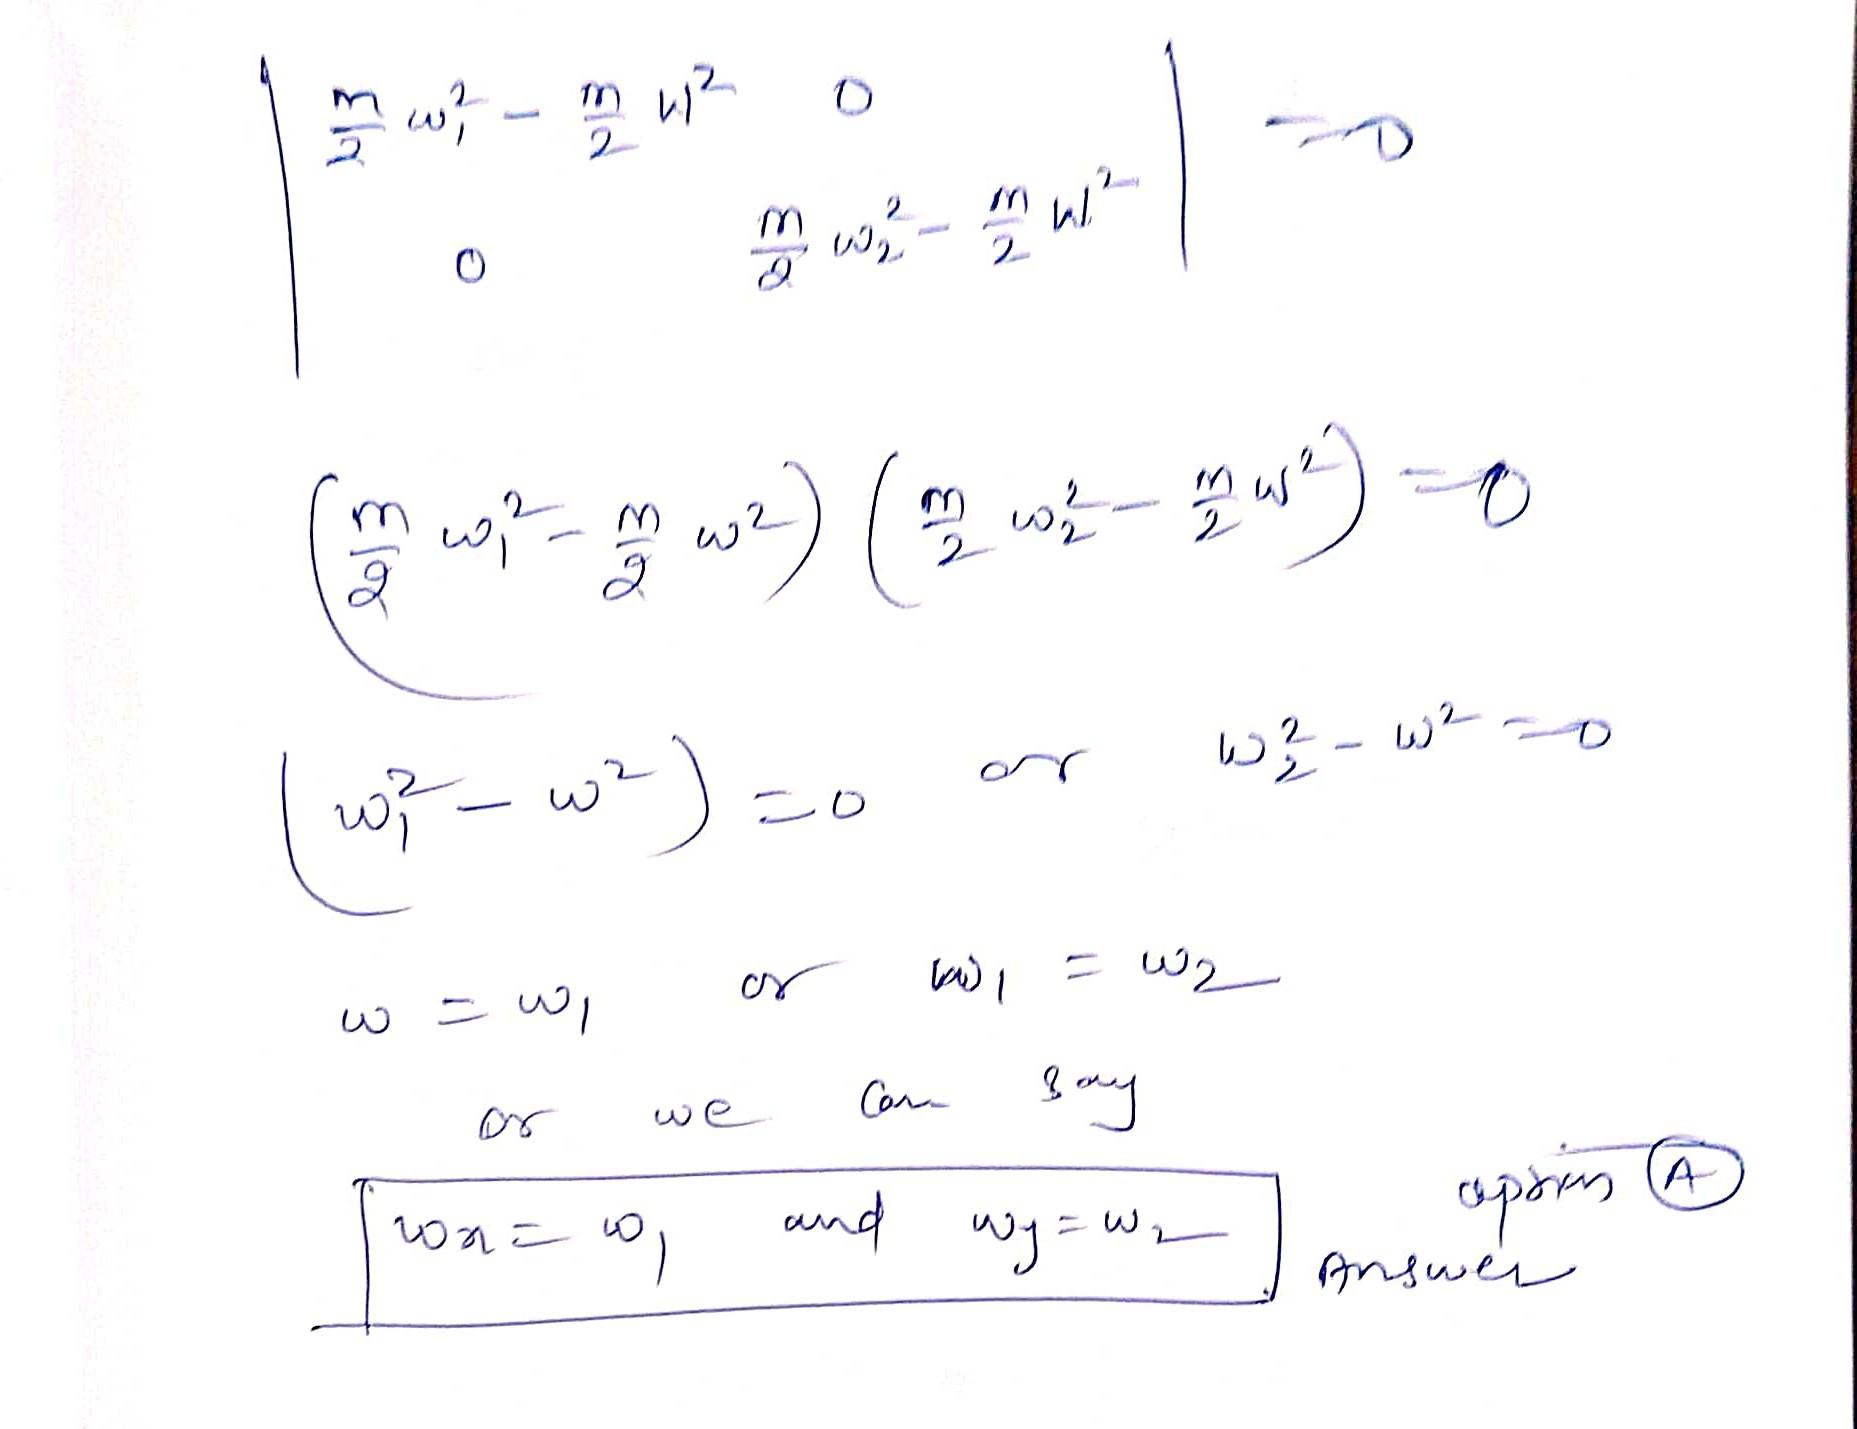 | m/2 ω₁² - m/2 ω² 0 | = 0
0 m/2 ω₂² - m/2 ω²
(m/2 ω₁² - m/2 ω²) (m/2 ω₂² - m/2 ω²) = 0
(ω₁² - ω²) = 0 or ω₂² - ω² = 0
ω = ω₁ or ω₁ = ω₂
or we can say
ωx = ω₁ and ωy = ω₂ option A
Answer